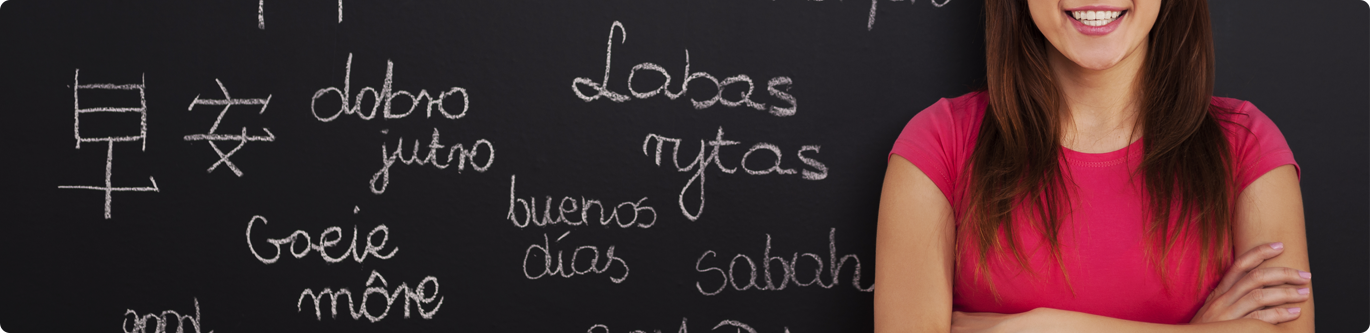 早安
dobro
jutro
Labas
rytas
buenos
días
Goeie
môre
sabah
good